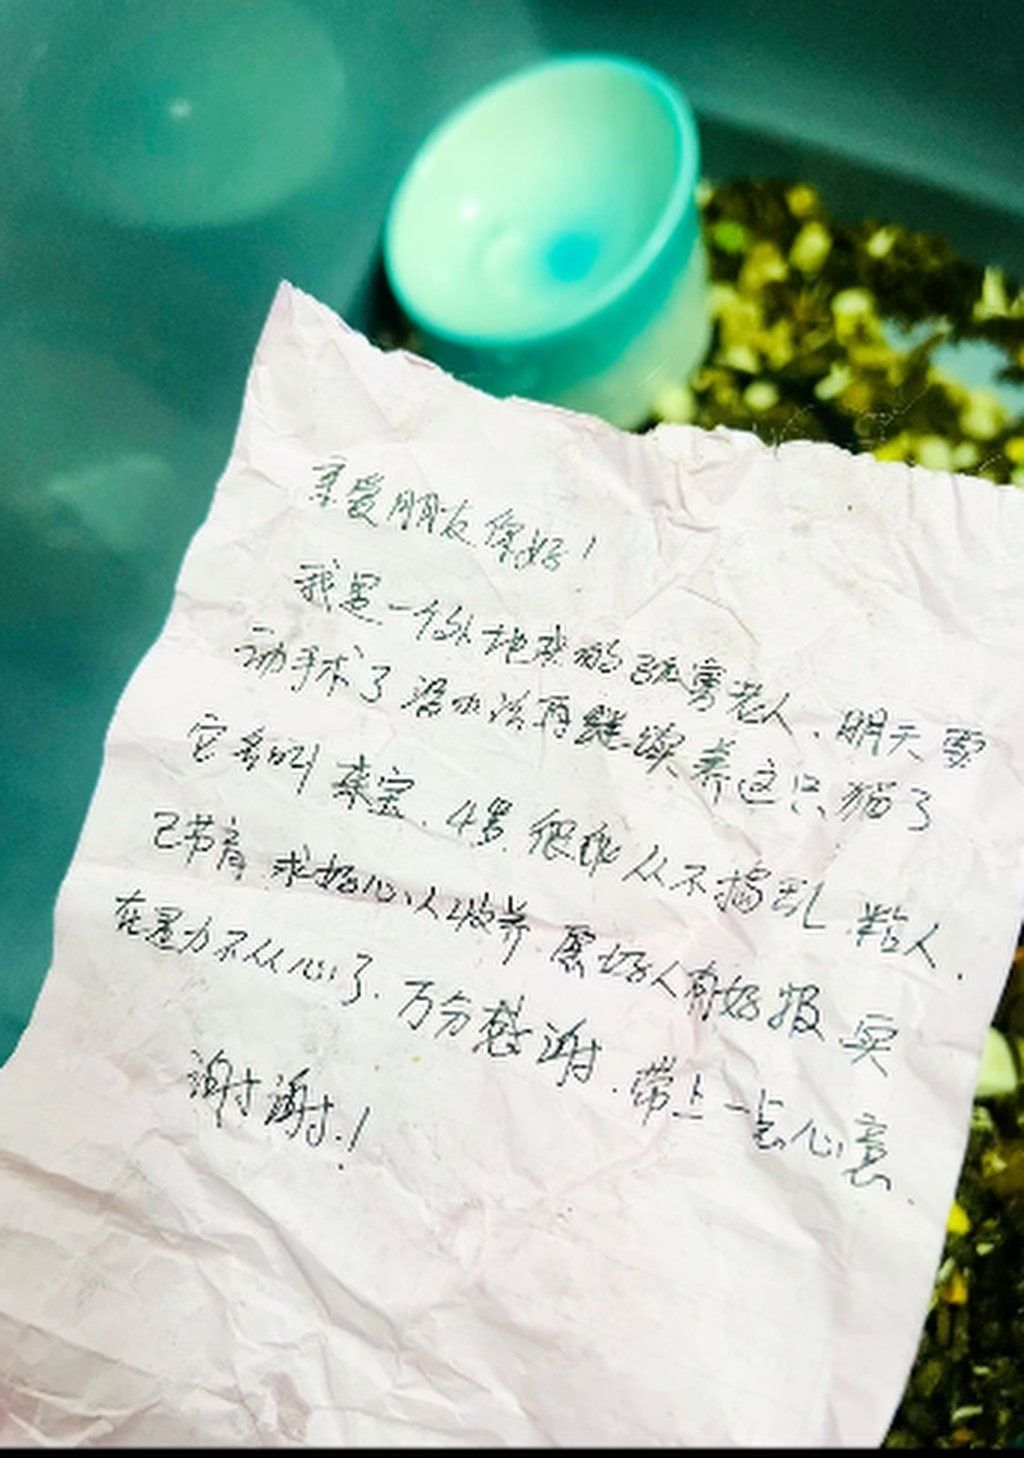 亲爱朋友你好！
我是一个外地来的孤寡老人．明天要
动手术了没办法再继续养这只猫了
它名叫来宝．4岁.很乖从不捣乱.粘人．
已节育.求好心人收养.愿好人有好报 实
在是力不从心了．万分感谢．带上一点心意．
谢谢！